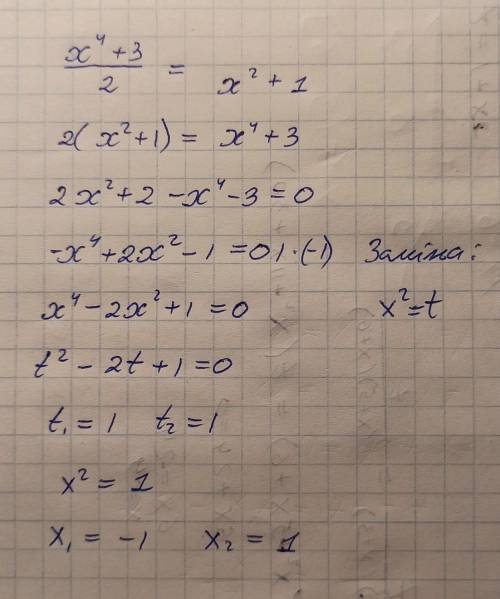 x⁴ + 3 / 2 = x² + 1
2( x² + 1) = x⁴ + 3
2x² + 2 - x⁴ - 3 = 0
-x⁴ + 2x² - 1 = 0 | · (-1) Заміна:
x⁴ - 2x² + 1 = 0 x² = t
t² - 2t + 1 = 0
t₁ = 1 t₂ = 1
x² = 1
x₁ = -1 x₂ = 1